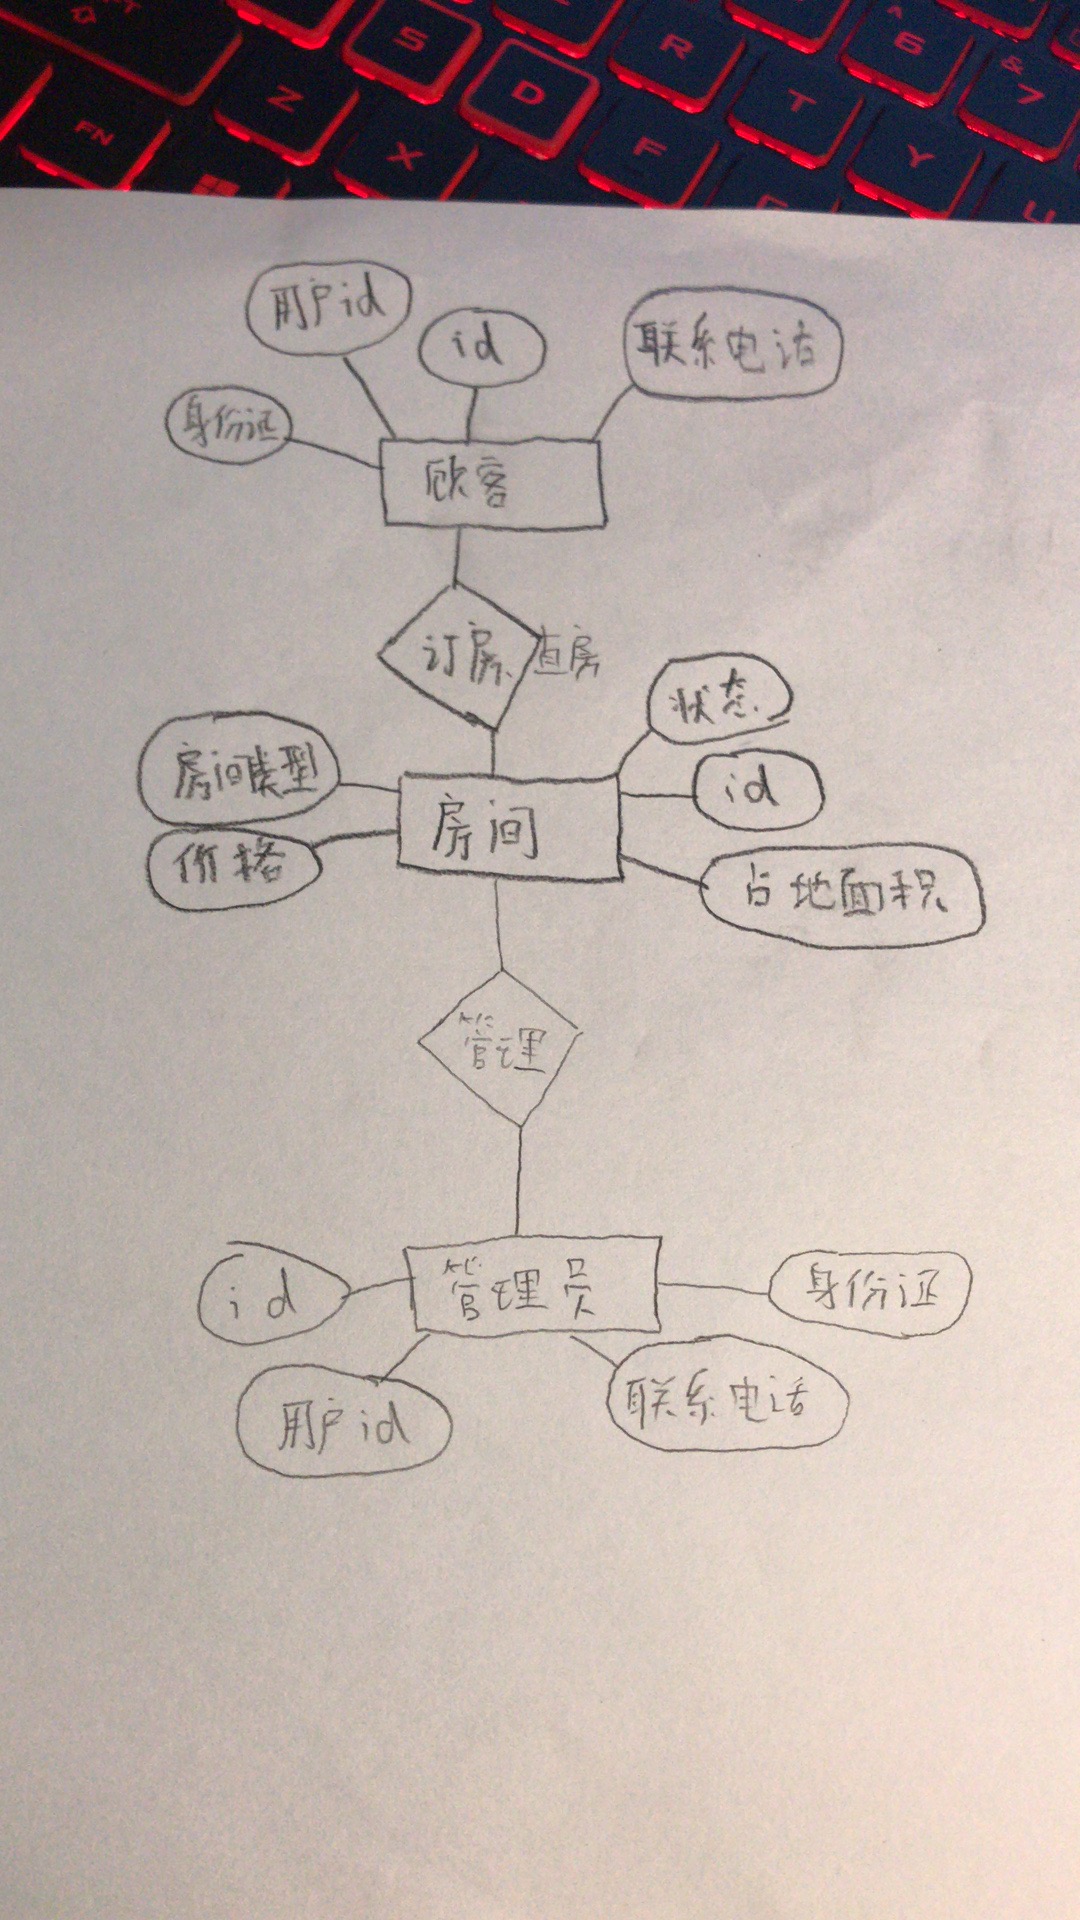 S
R
6
&
7
Z
D
T
FN
X
F
Y
用户id
id
联系电话
身份证
顾客
订房、查房
状态
房间类型
id
房间
价格
占地面积
管理
id
管理员
身份证
用户id
联系电话